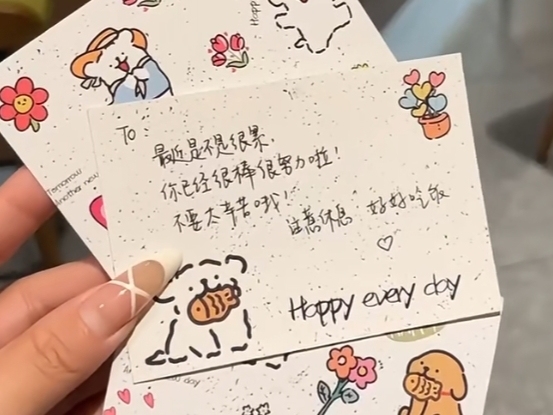 Happy
Tomorrow
another new
To:
最近是不是很累
你已经很棒很努力啦!
不要太辛苦哦!
注意休息 好好吃饭
♡
Happy every day
day